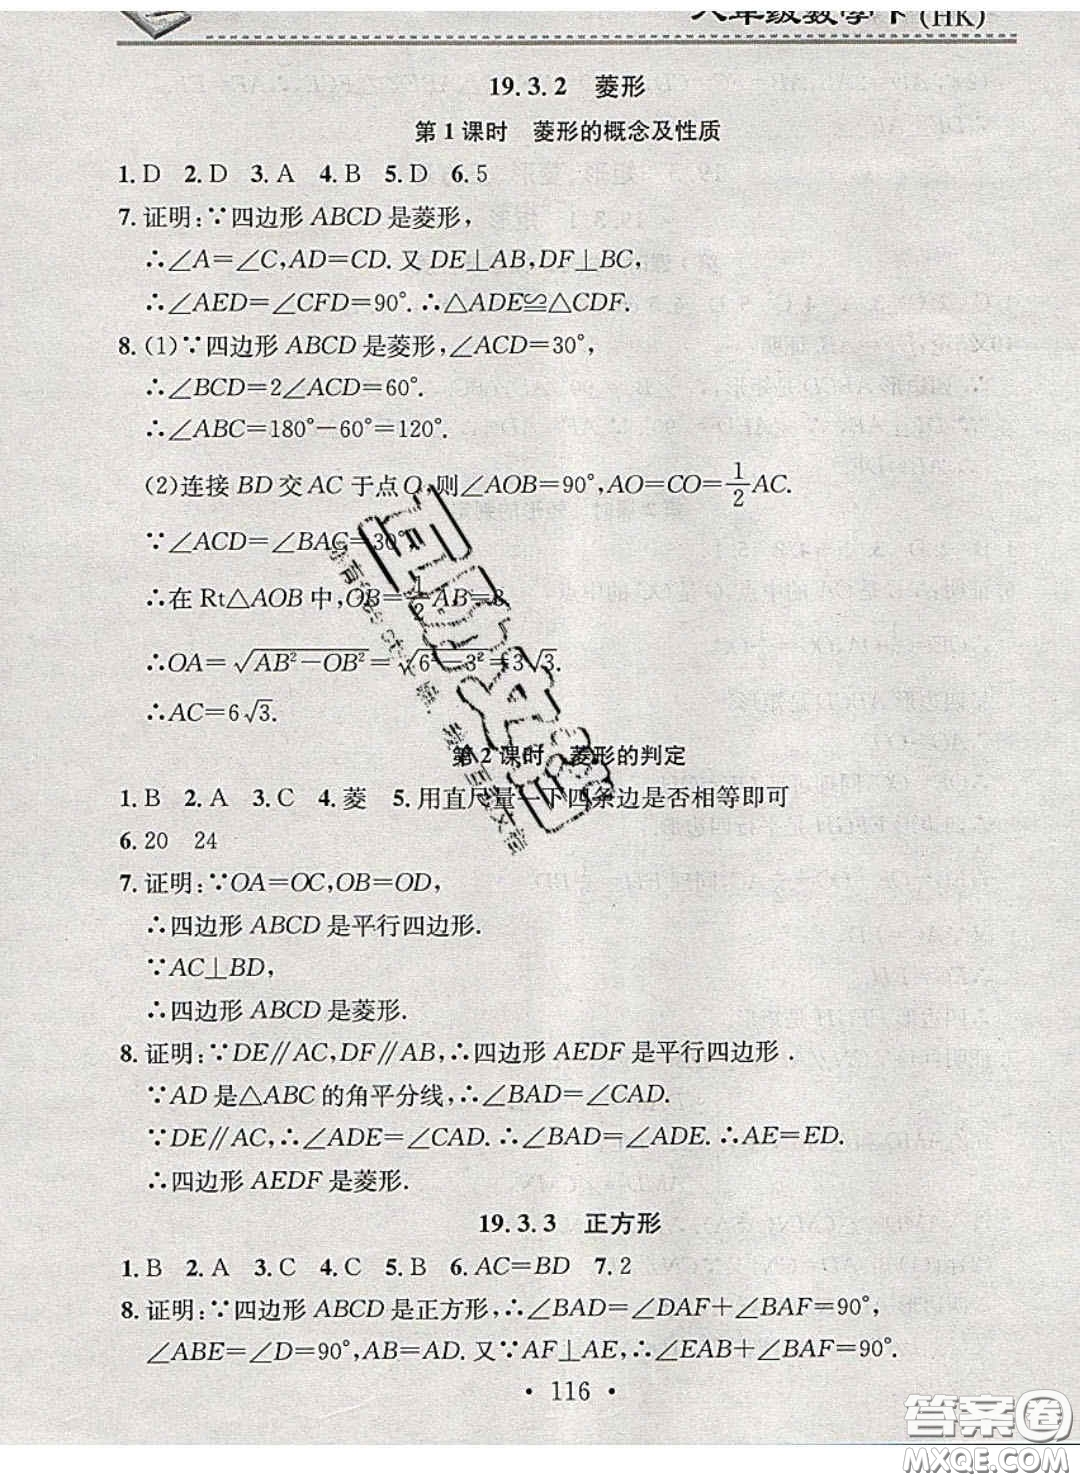 八年级数学下(HK)
19.3.2 菱形
第1课时 菱形的概念及性质
1.D 2.D 3.A 4.B 5.D 6.5
7.证明:∵四边形ABCD是菱形,
∴∠A=∠C,AD=CD.又DE⊥AB,DF⊥BC,
∴∠AED=∠CFD=90°.∴△ADE≌△CDF.
8.(1)∵四边形ABCD是菱形,∠ACD=30°,
∴∠BCD=2∠ACD=60°.
∴∠ABC=180°-60°=120°.
(2)连接BD交AC于点O,则∠AOB=90°,AO=CO=1/2AC.
∵∠ACD=∠BAC=30°,
∴在Rt△AOB中,OB=1/2AB=3.
∴OA=√(AB²-OB²)=√(6²-3²)=3√3.
∴AC=6√3.
第2课时 菱形的判定
1.B 2.A 3.C 4.菱 5.用直尺量一下四条边是否相等即可
6.20 24
7.证明:∵OA=OC,OB=OD,
∴四边形ABCD是平行四边形.
∵AC⊥BD,
∴四边形ABCD是菱形.
8.证明:∵DE∥AC,DF∥AB,∴四边形AEDF是平行四边形.
∵AD是△ABC的角平分线,∴∠BAD=∠CAD.
∵DE∥AC,∴∠ADE=∠CAD.∴∠BAD=∠ADE.∴AE=ED.
∴四边形AEDF是菱形.
19.3.3 正方形
1.B 2.A 3.C 4.C 5.B 6.AC=BD 7.2
8.证明:∵四边形ABCD是正方形,∴∠BAD=∠DAF+∠BAF=90°,
∠ABE=∠D=90°,AB=AD.又∵AF⊥AE,∴∠EAB+∠BAF=90°.
·116·
答案圈
MXQE.COM